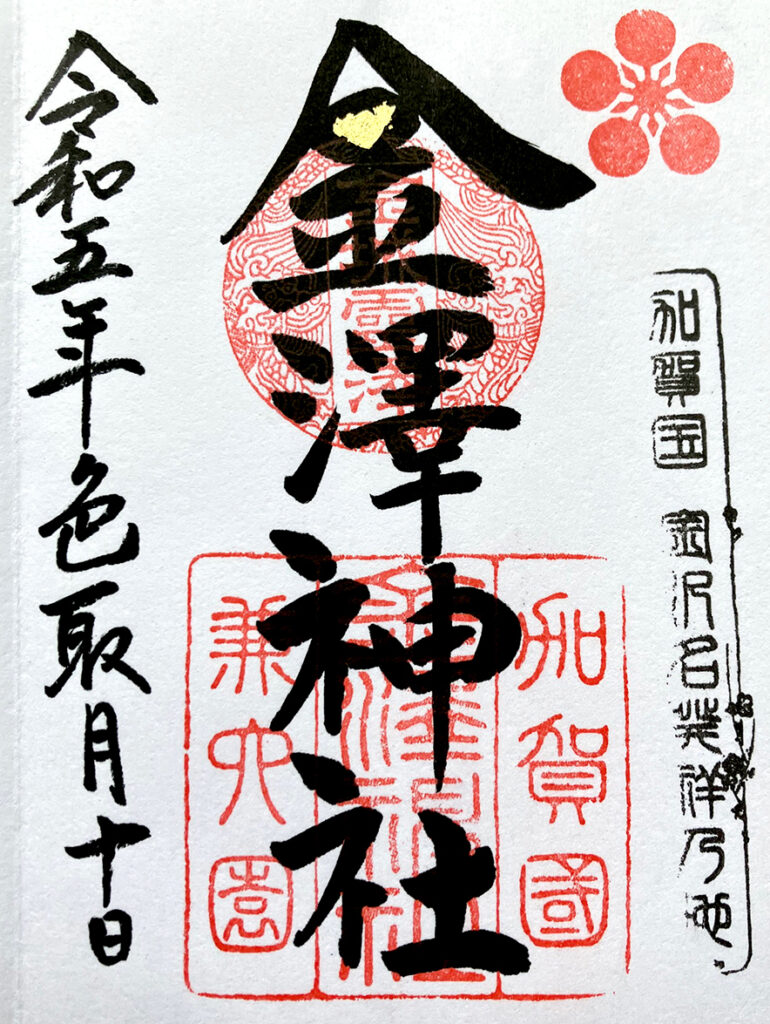 加賀国 金沢名発祥乃地
加賀國
金澤神社
兼六園
金城靈澤
金澤神社
令和五年色取月十日